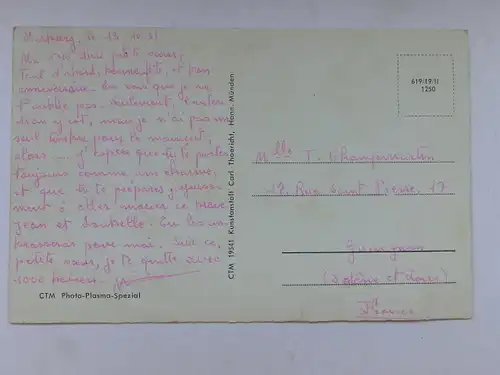 le 13.10.51
Ma très chère petite soeur,
Tout d'abord, bonne fête, et bon
anniversaire. Tu vois que je ne
t'oublie pas. Seulement,
y est, mais je n'ai pas un
seul timbre pour le moment,
alors ... J'espère que tu te portes
toujours comme un charme,
et que tu te prépares
ment à aller ce brave
Jean et Isabelle. Tu les em-
brasseras pour moi. Sur ce,
petite soeur, je te quitte avec
1000 baisers.
CTM Photo-Plasma-Spezial
CTM 19541 Kunstanstalt Carl Thoericht, Hann. Münden
619/19/II
1250
Mlle T. Champmartin
17, Rue Saint Pierre, 17
(Saône et Loire)
France